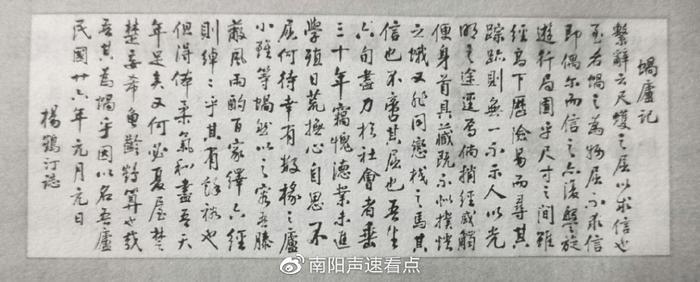 蝸廬記
繫辭云尺蠖之屈以求信也
至若蝸之為物屈不求信
即偶尔而信之亦復盤旋
遊行局囿乎尺寸之間雖
經高下歷險易而尋其
踪跡則無一不示人以光
明之途逕焉倘捎經感觸
便身首具藏既不似撲燈
之蛾又非同戀棧之馬其
信也不啻其屈也吾生
六旬盡力於社會者垂
三十年竊愧德業未進
學殖日荒撫心自思不
屈何待幸有數椽之廬
小雖等蝸然以之容吾膝
蔽風雨酌百家繹六經
則綽綽乎其有餘裕也
但得体柔氣和盡吾天
年足矣又何必夏屋楚
楚妄希龜齡特算也哉
吾其為蝸乎因以名吾廬
民國廿六年元月元日
楊鶴汀誌
南阳声速看点